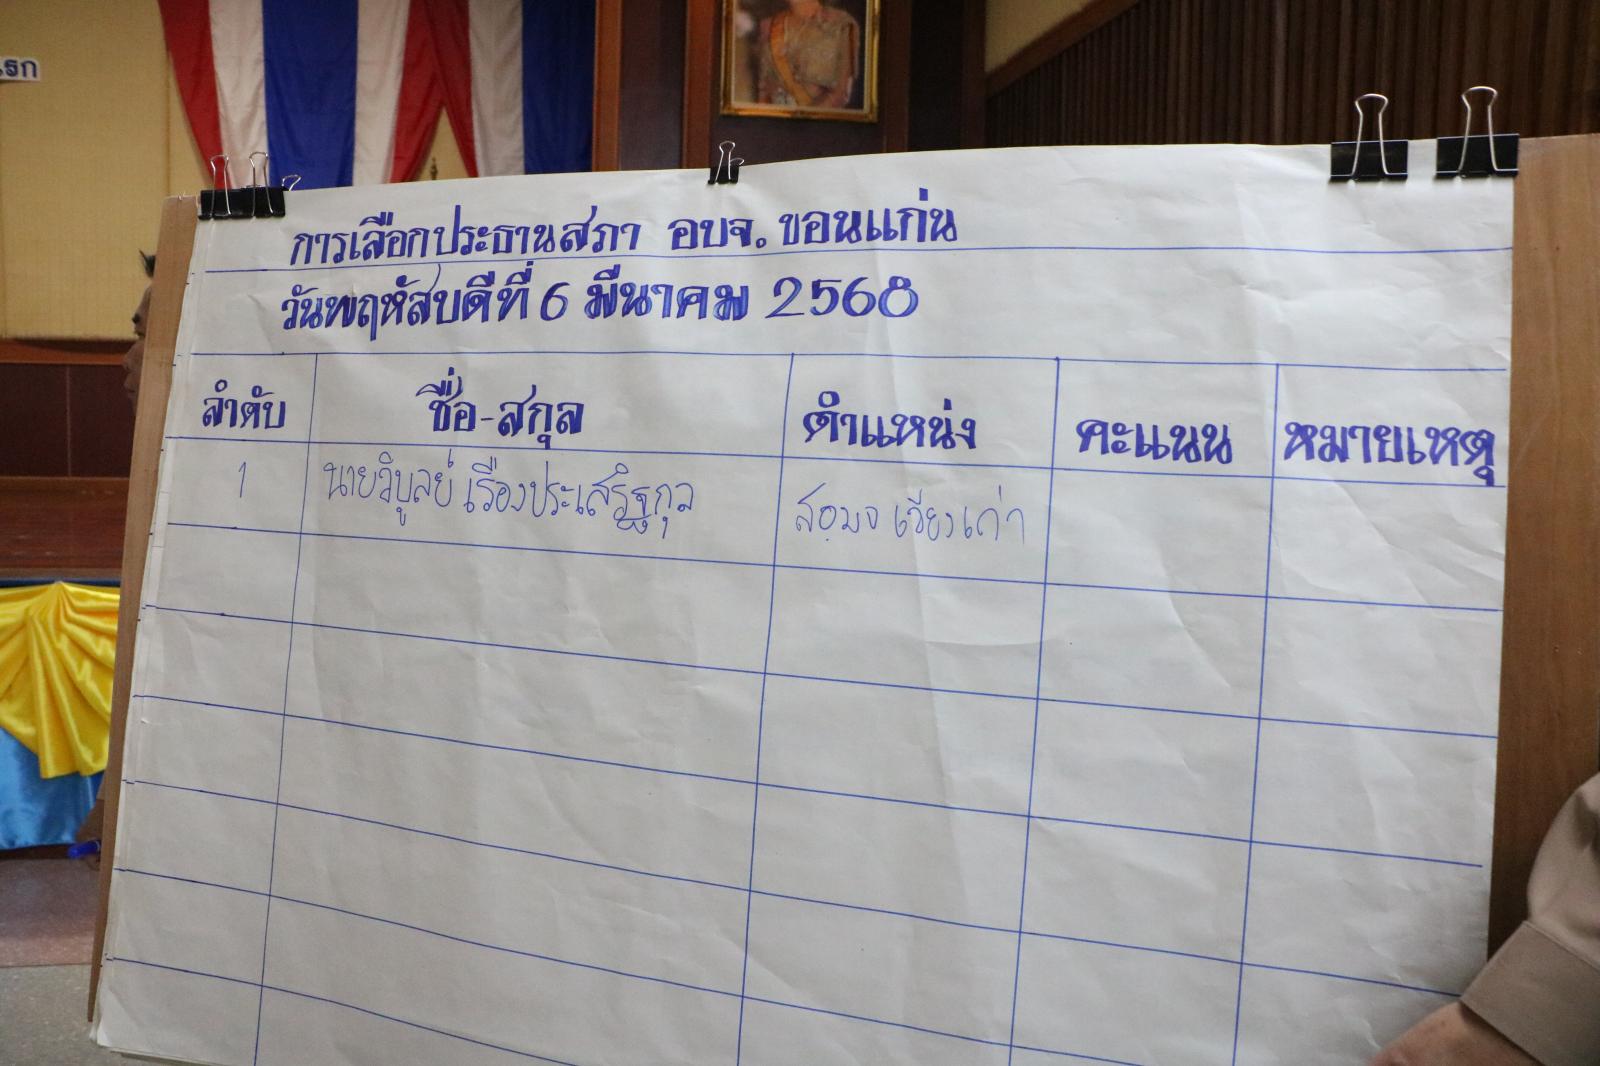 รก
การเลือกประธานสภา อบจ.ขอนแก่น
วันพฤหัสบดีที่ 6 มีนาคม 2568
ลำดับ ชื่อ-สกุล ตำแหน่ง คะแนน หมายเหตุ
1 นายวิบูลย์ เรืองประเสริฐกุล ส.อบจ เวียงเก่า